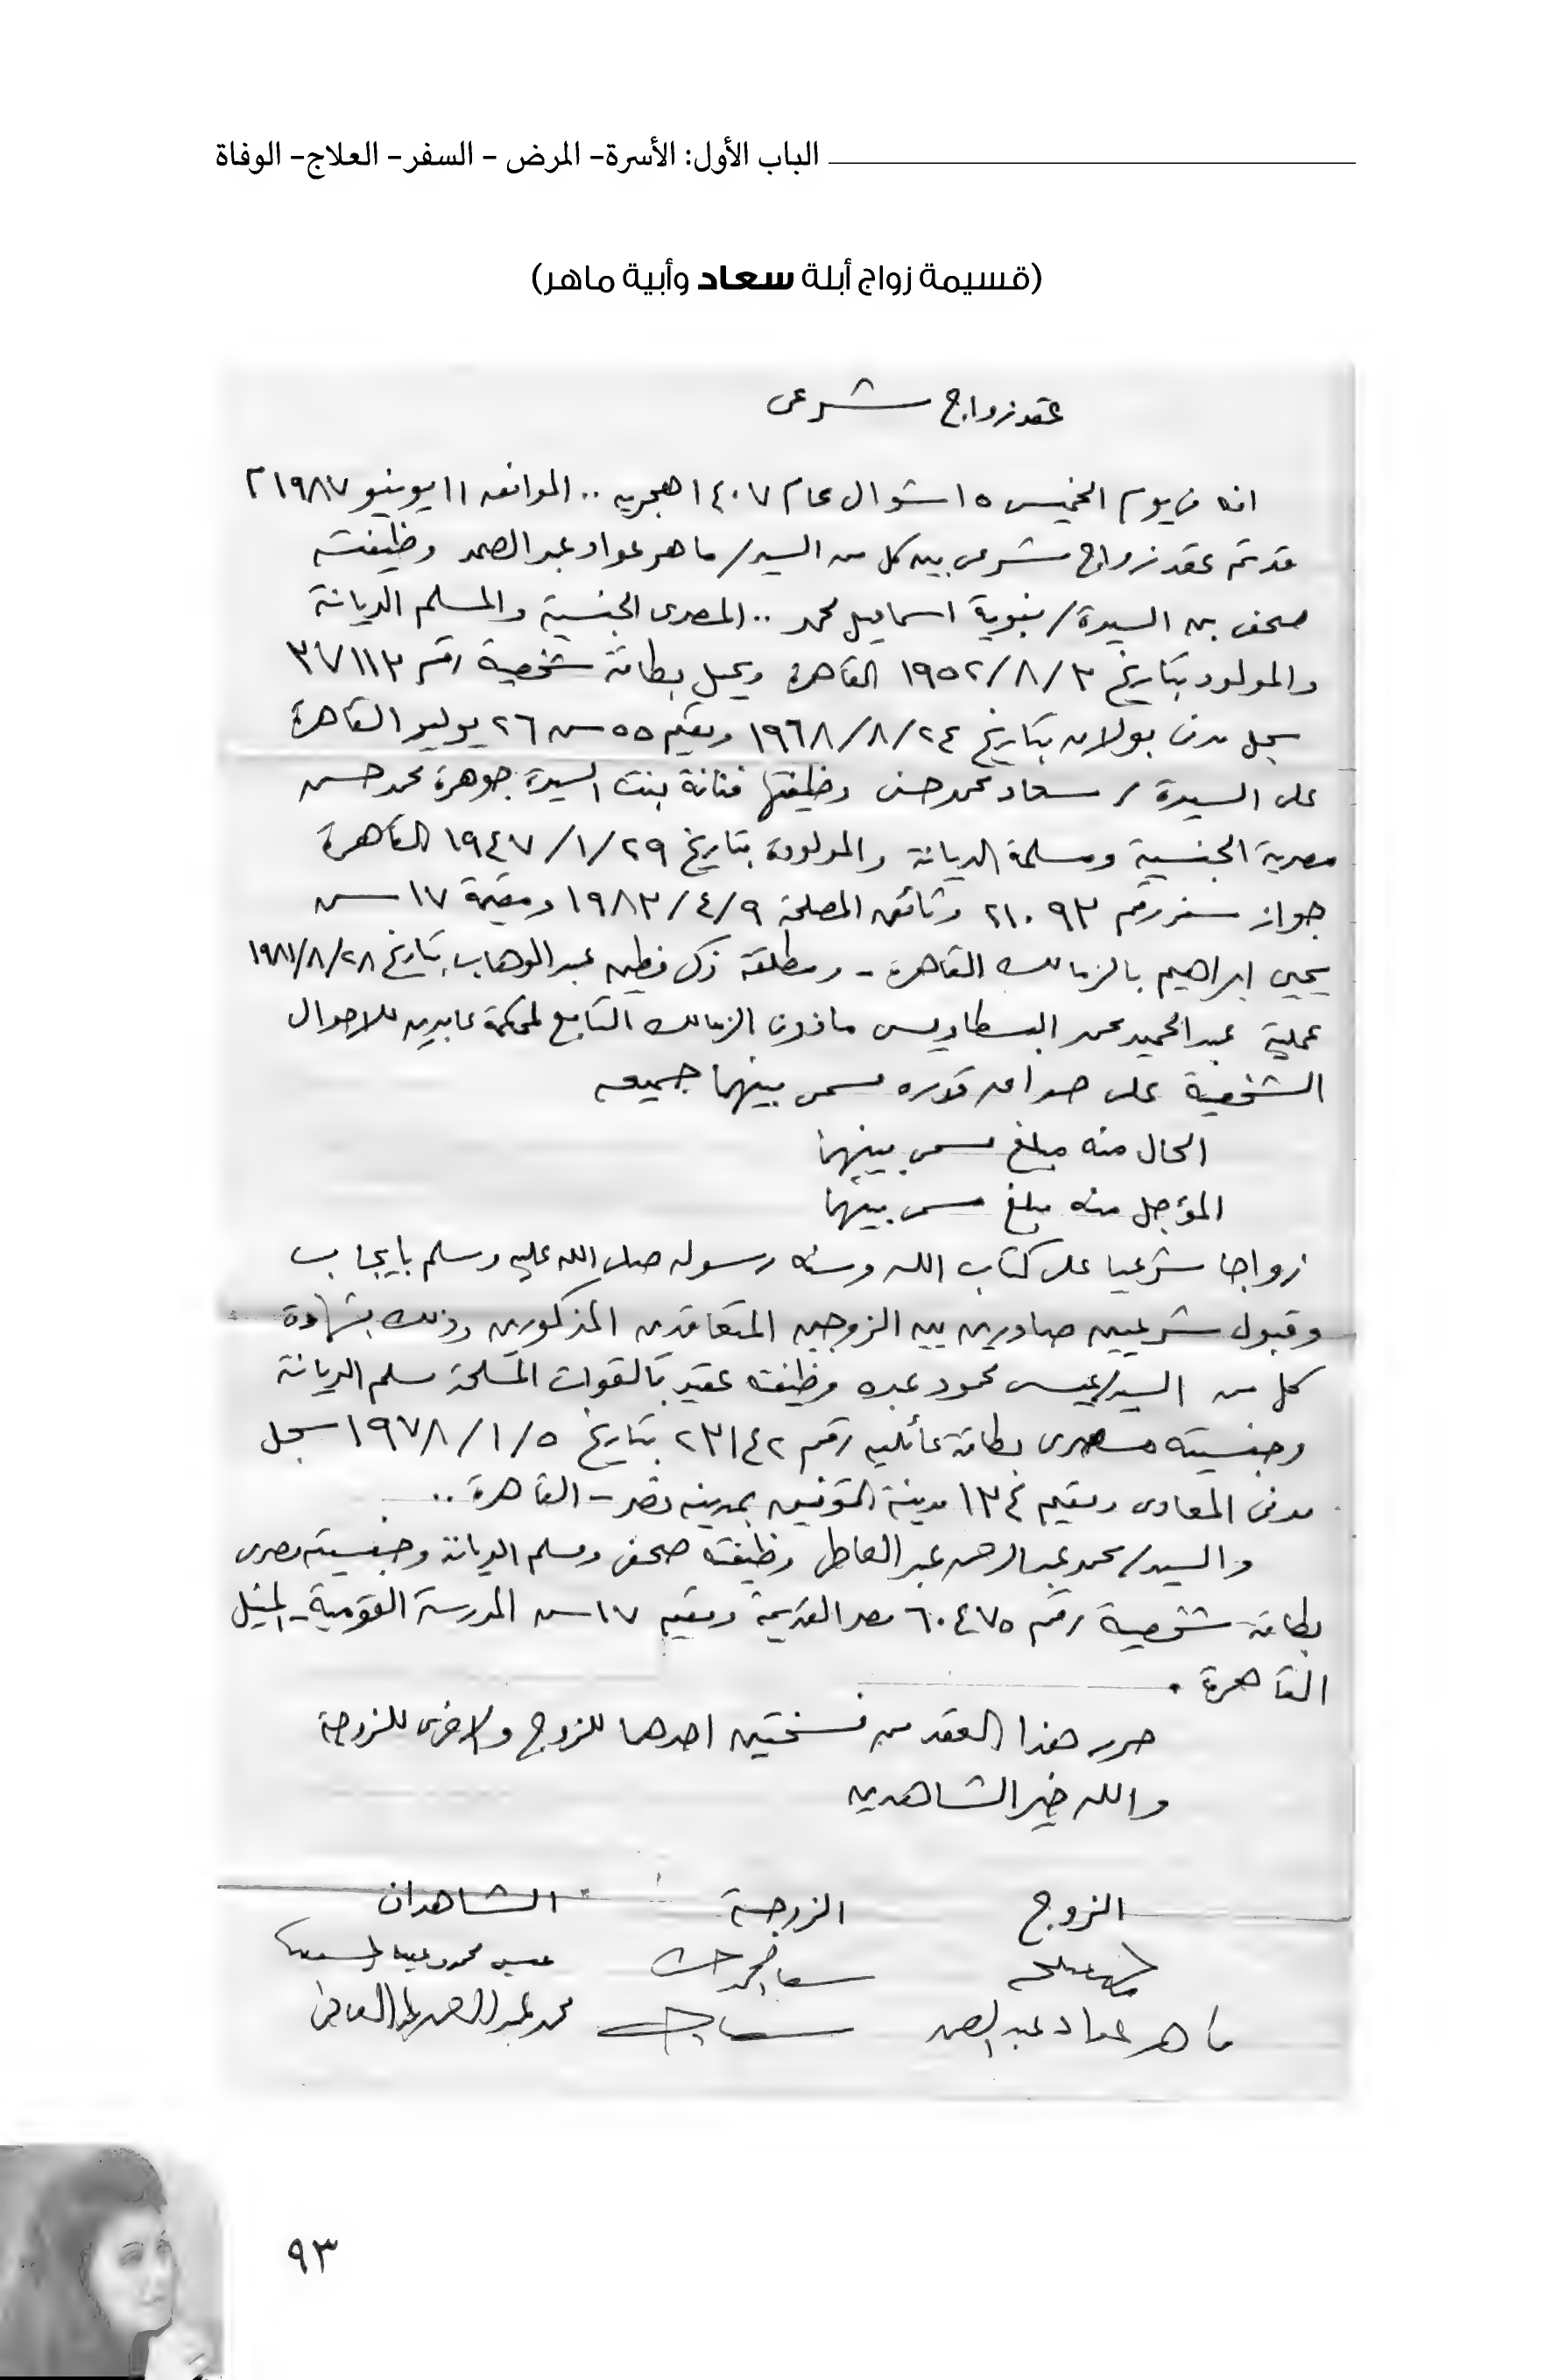 الباب الأول: الأسرة- المرض - السفر- العلاج- الوفاة
(قسيمة زواج أبلة سعاد وأبية ماهر)
عقد زواج شرعى
انه فى يوم الخميس ١٥ شوال عام ١٤٠٧ هجريه .. الموافق ١١ يونيو ١٩٨٧ م
قد تم عقد زواج شرعى بين كل من السيد/ ماهر عواد عبد الصمد وظيفته
صحفى بن السيدة/ نبوية اسماعيل محمد .. المصرى الجنسية والمسلم الديانة
والمولود بتاريخ ٣/٨/١٩٥٢ القاهرة ويحمل بطاقة شخصية رقم ٣٧١١٣
سجل مدنى بولاق بتاريخ ٢٤/٨/١٩٦٨ ويقيم ٥٥ ش ٢٦ يوليو القاهرة
على السيدة / سعاد محمد حسنى وظيفتها فنانة بنت السيدة جوهرة محمد حسن
مصرية الجنسية ومسلمة الديانة والمولودة بتاريخ ٢٩/١/١٩٤٧ القاهرة
جواز سفر رقم ٢١٠٩٣ وثائق المصلحة ٩/٤/١٩٨٣ ومقيمة ١٧ ش
يحيى ابراهيم بالزمالك القاهرة - ومطلقة زكى فطين عبد الوهاب بتاريخ ٢٨/٨/١٩٨١
عملية عبد الحميد محمد البسطاويسى ماذون الزمالك التابع لمحكمة عابدين للاحوال
الشخصية على صداق قدره مسمى بينهما جميعه
الحال منه مبلغ مسمى بينهما
المؤجل منه مبلغ مسمى بينهما
زواجا شرعيا على كتاب الله وسنه رسوله صلى الله عليه وسلم بايجاب
وقبول شرعيين صادرين بين الزوجين المتعاقدين المذكورين وذلك بشهادة
كل من السيد/ عيسى محمود عبده وظيفته عقيد بالقوات المسلحة مسلم الديانة
وجنسيته مصرى بطاقة عائليه رقم ٢٣١٤٢ بتاريخ ٥/١/١٩٧٨ سجل
مدنى المعادى ويقيم ١٣٤ مدينة التوفيق بمدينه نصر - القاهرة ..
والسيد/ محمد عبد الرحمن عبد العاطى وظيفته صحفى ومسلم الديانة وجنسيته مصرى
بطاقة شخصية رقم ٦٠٤٧٥ مصر القديمة ويقيم ١٧ ش المدرسة القومية - المنيل
القاهرة .
حرر هذا العقد من نسختين احدهما للزوج والاخرى للزوجة
والله خير الشاهدين
الزوج الزوجة الشاهدان
سعاد محمد حسنى عيسى محمود عبده
ماهر عواد عبد الصمد سعاد محمد عبد الرحمن عبد العاطى
٩٣